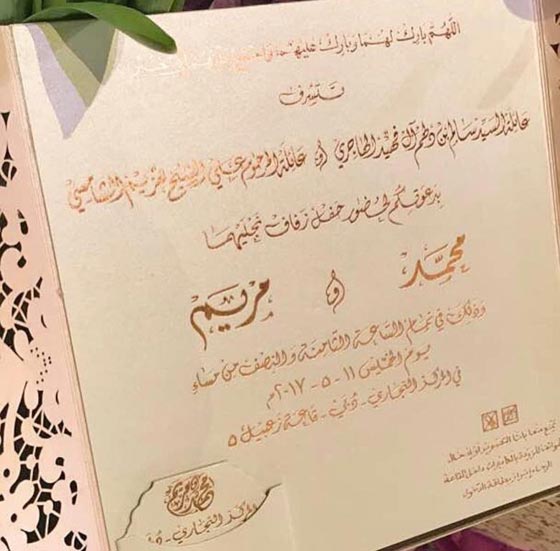 اللهم بارك لهما وبارك عليهما
تتشرف
عائلة السيد سالم بن دلهم آل فهيد الهاجري و عائلة المرحوم علي الشيخ الشامسي
بدعوتكم لحضور حفل زفاف نجليهما
محمد و مريم
وذلك في تمام الساعة الثامنة والنصف من مساء
يوم الخميس ١١ - ٥ - ٢٠١٧م
في المركز التجاري - دبي - قاعة زعبيل ٥
المركز التجاري - دبي